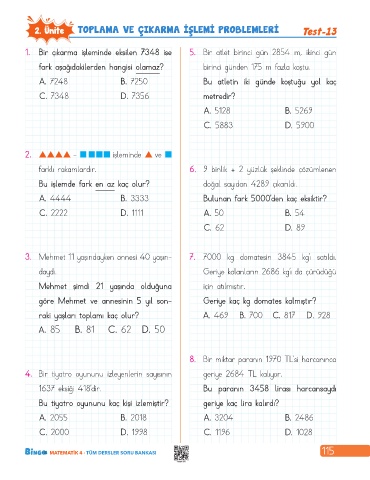 2. Ünite
TOPLAMA VE ÇIKARMA İŞLEMİ PROBLEMLERİ
Test-13
1. Bir çıkarma işleminde eksilen 7348 ise
fark aşağıdakilerden hangisi olamaz?
A. 7248 B. 7250
C. 7348 D. 7356
2. ▲▲▲▲ - ■■■■ işleminde ▲ ve ■
farklı rakamlardır.
Bu işlemde fark en az kaç olur?
A. 4444 B. 3333
C. 2222 D. 1111
3. Mehmet 11 yaşındayken annesi 40 yaşın-
daydı.
Mehmet şimdi 21 yaşında olduğuna
göre Mehmet ve annesinin 5 yıl son-
raki yaşları toplamı kaç olur?
A. 85 B. 81 C. 62 D. 50
4. Bir tiyatro oyununu izleyenlerin sayısının
1637 eksiği 418'dir.
Bu tiyatro oyununu kaç kişi izlemiştir?
A. 2055 B. 2018
C. 2000 D. 1998
5. Bir atlet birinci gün 2854 m, ikinci gün
birinci günden 175 m fazla koştu.
Bu atletin iki günde koştuğu yol kaç
metredir?
A. 5128 B. 5269
C. 5883 D. 5900
6. 9 binlik + 2 yüzlük şeklinde çözümlenen
doğal sayıdan 4289 çıkarıldı.
Bulunan fark 5000'den kaç eksiktir?
A. 50 B. 54
C. 62 D. 89
7. 7000 kg domatesin 3845 kg'ı satıldı.
Geriye kalanların 2686 kg'ı da çürüdüğü
için atılmıştır.
Geriye kaç kg domates kalmıştır?
A. 469 B. 700 C. 817 D. 928
8. Bir miktar paranın 1970 TL'si harcanınca
geriye 2684 TL kalıyor.
Bu paranın 3458 lirası harcansaydı
geriye kaç lira kalırdı?
A. 3204 B. 2486
C. 1196 D. 1028
BİNGO MATEMATİK 4 - TÜM DERSLER SORU BANKASI
115